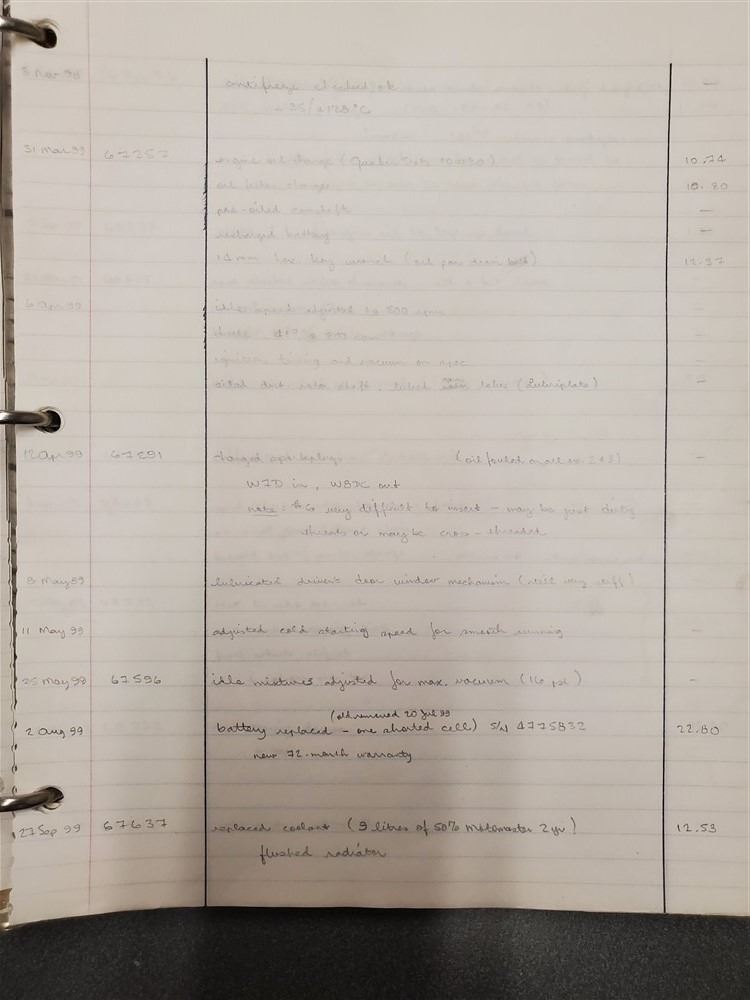 5 Mar 99 antifreeze checked ok —
- 35/+128°C
31 Mar 99 67257 engine oil change (Quaker State 10W30) 10.74
oil filter change 10.80
pre-oiled camshaft —
recharged battery —
14 mm hex key wrench (oil pan drain bolt) 12.37
6 Apr 99 idle speed adjusted to 800 rpm —
—
ignition timing and vacuum on spec —
oiled dist. rotor shaft, lubed lobes (Lubriplate) —
12 Apr 99 67291 changed sparkplugs (oil fouled small ex. 2&3) —
W7D in, W8DC out
note: #6 very difficult to insert - may be just dirty
threads or may be cross-threaded
8 May 99 lubricated driver's door window mechanism (still very stiff)
11 May 99 adjusted cold starting speed for smooth running —
25 May 99 67596 idle mixtures adjusted for max. vacuum (16 psi) —
(old removed 20 Jul 99
2 Aug 99 battery replaced - one shorted cell) S/N 4775832 22.80
new 72-month warranty
27 Sep 99 67637 replaced coolant (9 litres of 50% Motomaster 2yr) 12.53
flushed radiator